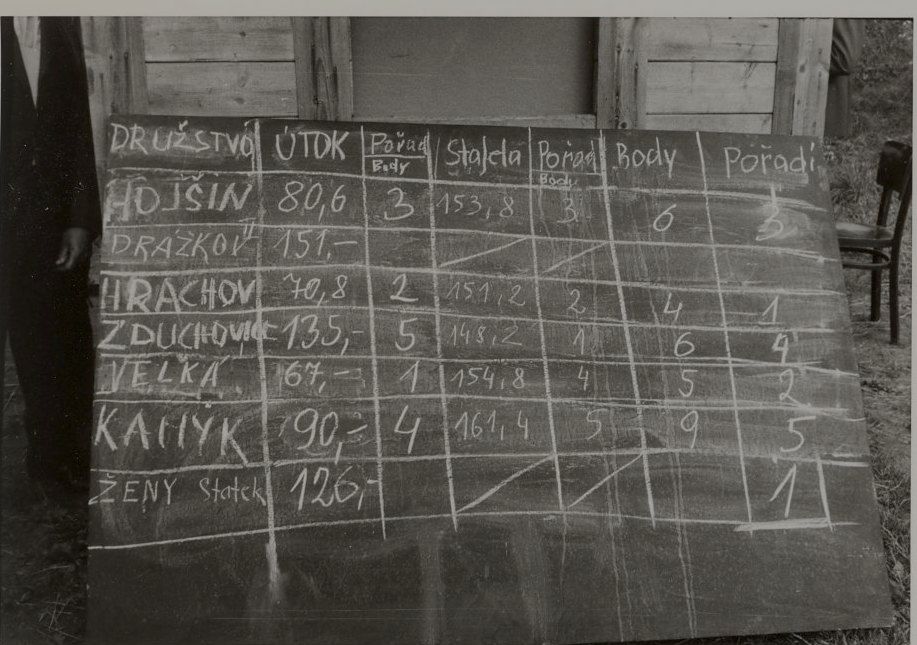 DRUŽSTVO ÚTOK Pořad Body Štafeta Pořad Body Body Pořadí
HOJŠIN 80,6 3 153,8 3 6 3
DRÁŽKOV II 151,-
HRACHOV 70,8 2 151,2 2 4 1
ZDUCHOVICE 135,- 5 148,2 1 6 4
VELKÁ 67,- 1 154,8 4 5 2
KAMÝK 90,- 4 161,4 5 9 5
ŽENY Statek 126,- 1